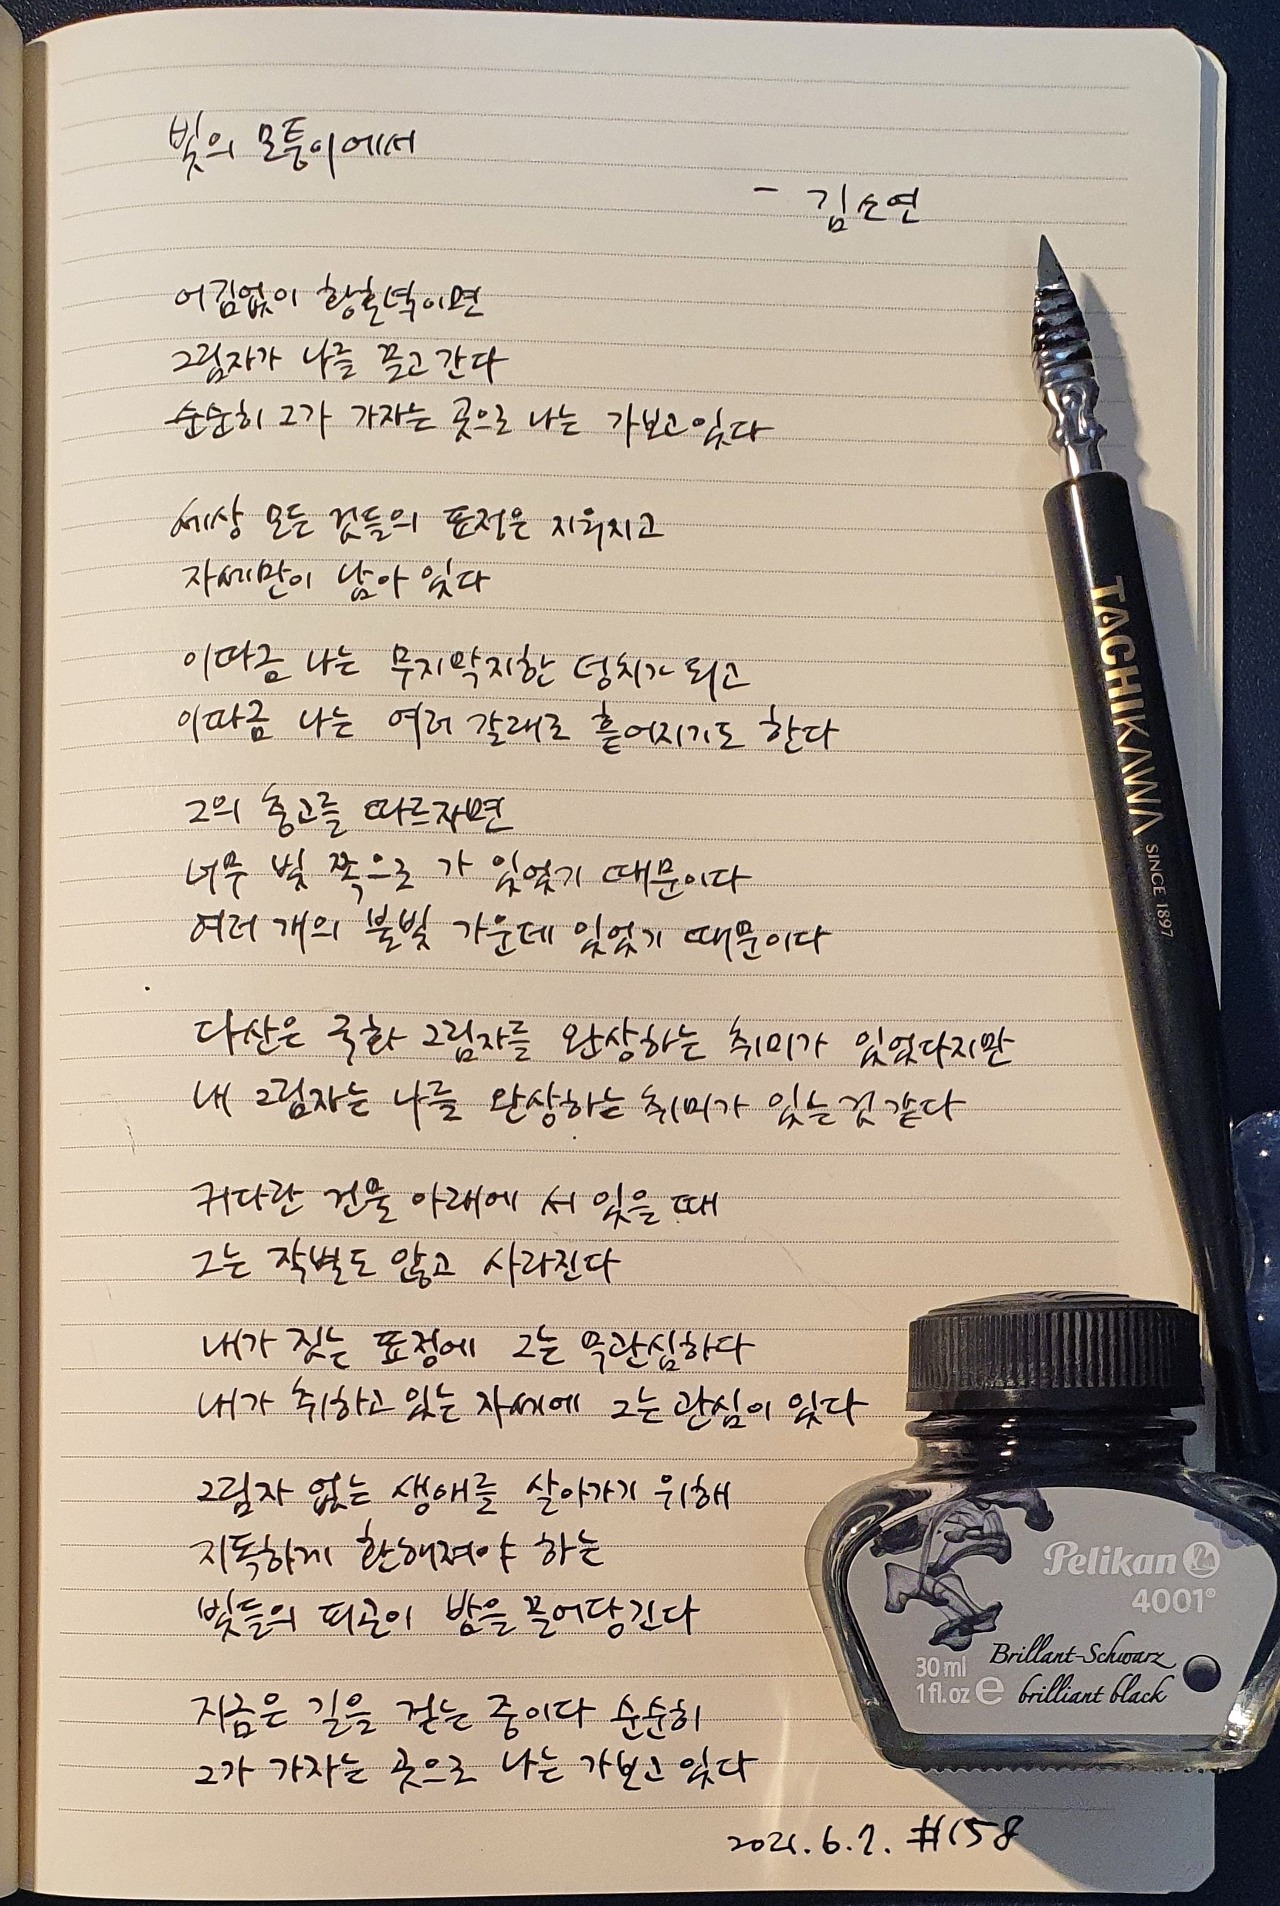 빛의 모퉁이에서
- 김소연
어김없이 황혼녘이면
그림자가 나를 끌고 간다
순순히 그가 가자는 곳으로 나는 가보고 있다
세상 모든 것들의 표정은 지워지고
자세만이 남아 있다
이따금 나는 무지막지한 덩치가 되고
이따금 나는 여러 갈래로 흩어지기도 한다
그의 충고를 따르자면
너무 빛 쪽으로 가 있었기 때문이다
여러 개의 불빛 가운데 있었기 때문이다
다산은 국화 그림자를 완상하는 취미가 있었다지만
내 그림자는 나를 완상하는 취미가 있는 것 같다
커다란 건물 아래에 서 있을 때
그는 작별도 않고 사라진다
내가 짓는 표정에 그는 무관심하다
내가 취하고 있는 자세에 그는 관심이 있다
그림자 없는 생애를 살아가기 위해
지독하게 환해져야 하는
빛들의 피곤이 밤을 끌어당긴다
지금은 길을 걷는 중이다 순순히
그가 가자는 곳으로 나는 가보고 있다
2021.6.7. #158
TACHIKAWA SINCE 1897
Pelikan
4001®
Brillant-Schwarz
30 ml
1 fl.oz e brilliant black